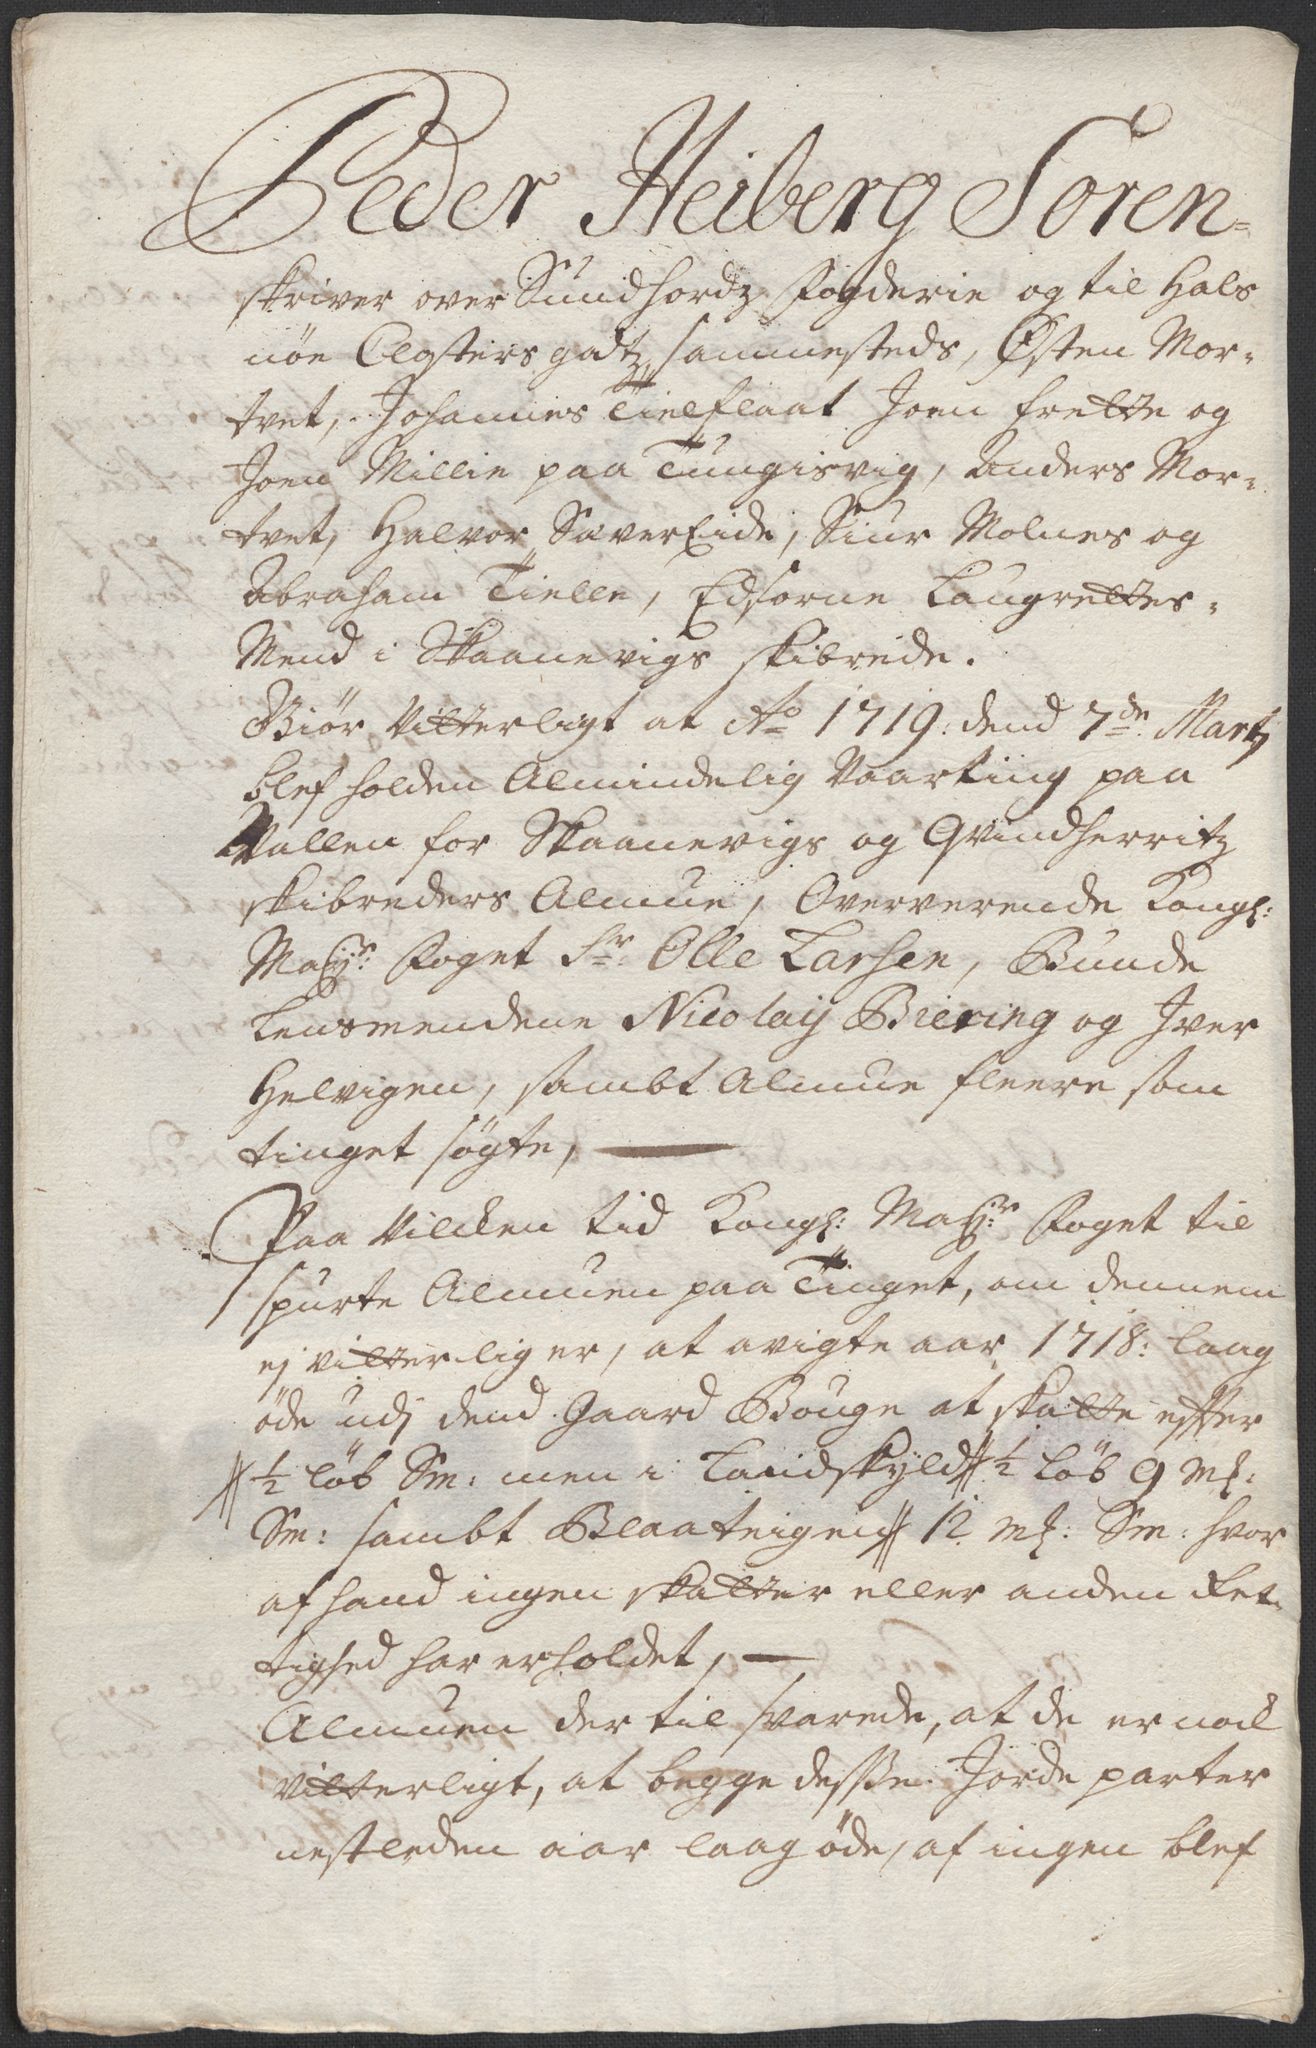 Peder Heiberg Soren-
skriver over Sundhordz fogderie og til Hals
nöe Closters godtz sammesteds, Østen Mor-
tvet, Johannes Tielflaat Joen Frette og
Joen Millie paa Tungisvig, Anders Mor-
tvet, Halvor SæverEide, Siur Molnes og
Abraham Tielle, Edsorne Laugrettes-
Mend i Skaanevigs skibrede.
Giör Vitterligt at Ao 1719: dend 7de Martz
blef holden Almindelig Vaarting paa
Vallen for Skaanevigs og Qvindherritz
skibreders Almue, Oververende Kongl:
Mayts: foget Sr. Olle Larsen, Bunde
Lensmendene Nicolaij Biering og Iver
Helvigen, sambt Almue fleere som
tinget sögte,
Paa Vilcken tid Kongl: Mayts: foget til
spurte Almuen paa Tinget, om dennem
ej vitterlig er, at avigte aar 1718: laag
öde udj dend gaard Bouge at skatte efter
// ½ löb Sm: men i Landskyld // ½ Löb 9 mk:
Sm: sambt Blaateigen // 12 mk: Sm: hvor
af hand ingen skatter eller anden Ret-
tighed har erholdet,
Almuen der til svarede, at de er nock
vitterligt, at begge desse Jorde parter
nestleden aar laag öde, af ingen blef